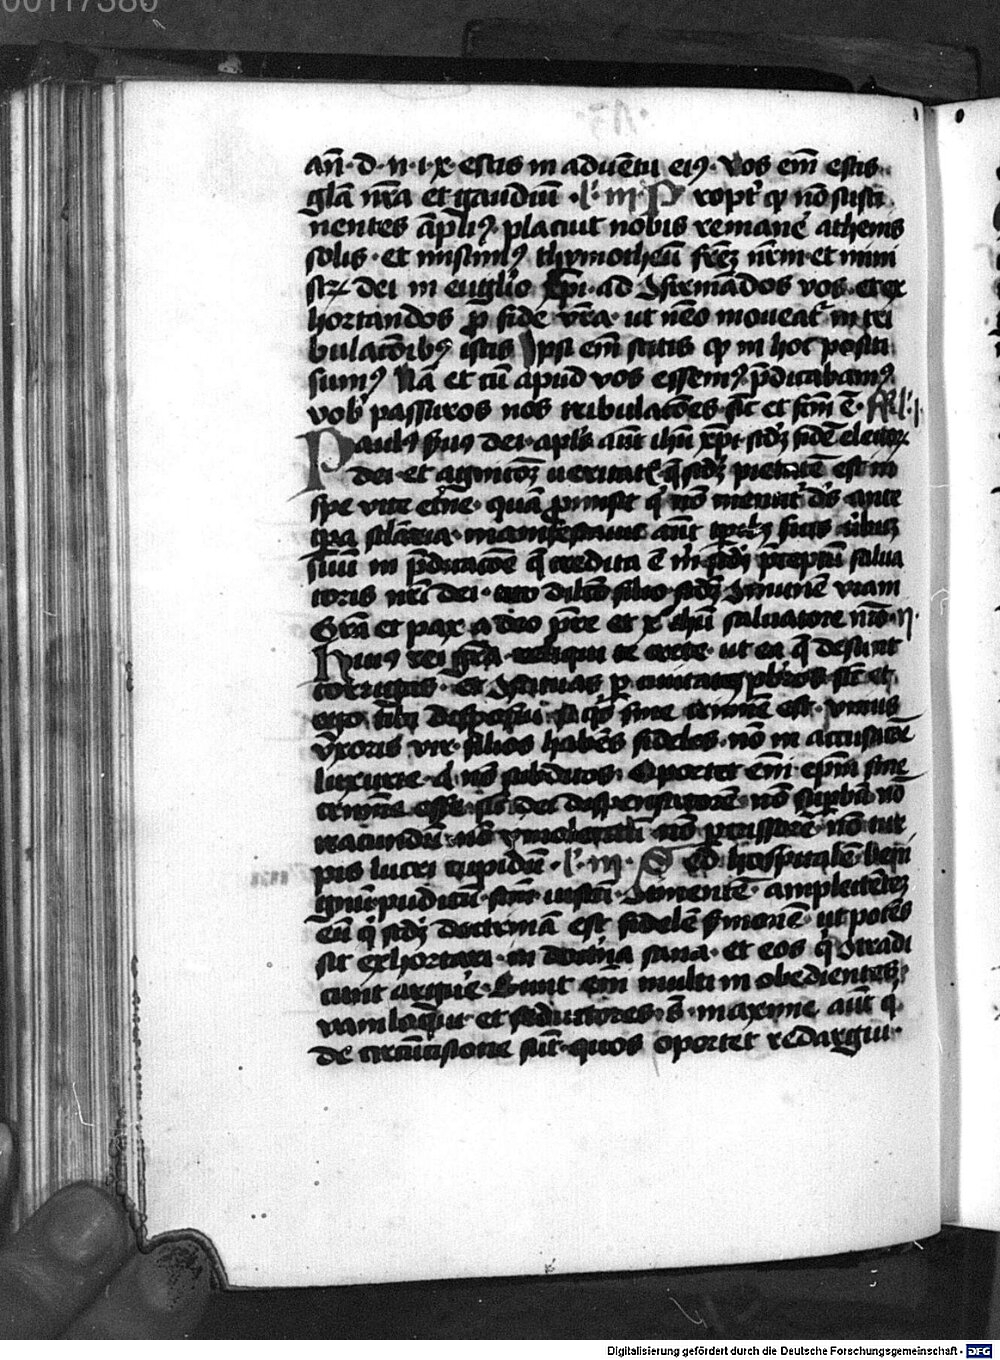 00117380
añ · d · n · i · x̄ · estis in advētu eiꝰ · Vos em̄ estis
gl̄a nr̄a et gaudiū · l · iij · Propt̄ qͥ nō susti
nentes āpliꝰ placuit nobis remanē athenis
solis · et misimꝰ thymotheū fr̄eꝫ nr̄m · et mini
str̄ dei in euglīo xp̄i · ad ꝯfirmādos vos · et ex
hortandos ꝓ fide vr̄a · ut nēo moueat᷑ in tri
bulac̄oībꝰ istis Ipsi em̄ scitis qͥ in hoc positi
sumꝰ Nā et cū apud vos essemꝰ p̄dicabamꝰ
vob̄ passuros nos tribulac̄oes · sic̄ et fc̄m ē ·
Paulꝰ s̄uus dei · apl̄s aūt ih̄u xp̄i · scd̄ꝫ fidē electoꝝ
dei · et agnic̄oꝫ ueritatꝭ q̄ scd̄ꝫ pietatē est in
spe vite et̄ne · quā ꝓmisit qͥ nō mentit᷑ d̄s ante
tp̄a sc̄laria · manifestauit aūt tp̄ibꝰ suis ūbuꝫ
suū in p̄dicac̄oe q̄ credita ē m̄ · scd̄ꝫ preceptū salua
toris nr̄i dei · tito dilc̄o filio · scd̄ꝫ ꝯmunē viam
Grā et pax a deo p̄re et x̄ ih̄u saluatore nr̄o · ij ·
Huiꝰ rei gr̄a reliqui te crete · ut ea q̄ desunt
corrigas · et ꝯstituas ꝑ ciuitates p̄br̄os · sic̄ et
ego tibi disposui · si qͥs sine crimīe est · vnius
vxoris vir · filios habēs fideles · nō in accusac̄oe
luxurie · aͭ nō subditos · Oportet em̄ · ep̄m sine
crimīe esse · sic̄ dei dispensatorē · nō suꝑbū nō
iracundū · nō vinolentū · nō ꝑcussorē · nō tur
pis lucri cupidū · l · iij · Sed hospitalē · beni
gnū · pudicū · sōm · iustū · ꝯtinentē · amplectētē
eū qͥ scd̄ꝫ doctrinā est fidelē s̄monē · ut potēs
sit exhortari · in doctrīa sana · et eos qͥ ꝯtradi
cunt argue · Sunt em̄ multi in obedientes
vaniloqͥ · et seductores · s̄ · maxime aūt qͥ
de circūcisione sūt · quos oportet redargui ·
Digitalisierung gefördert durch die Deutsche Forschungsgemeinschaft - DFG